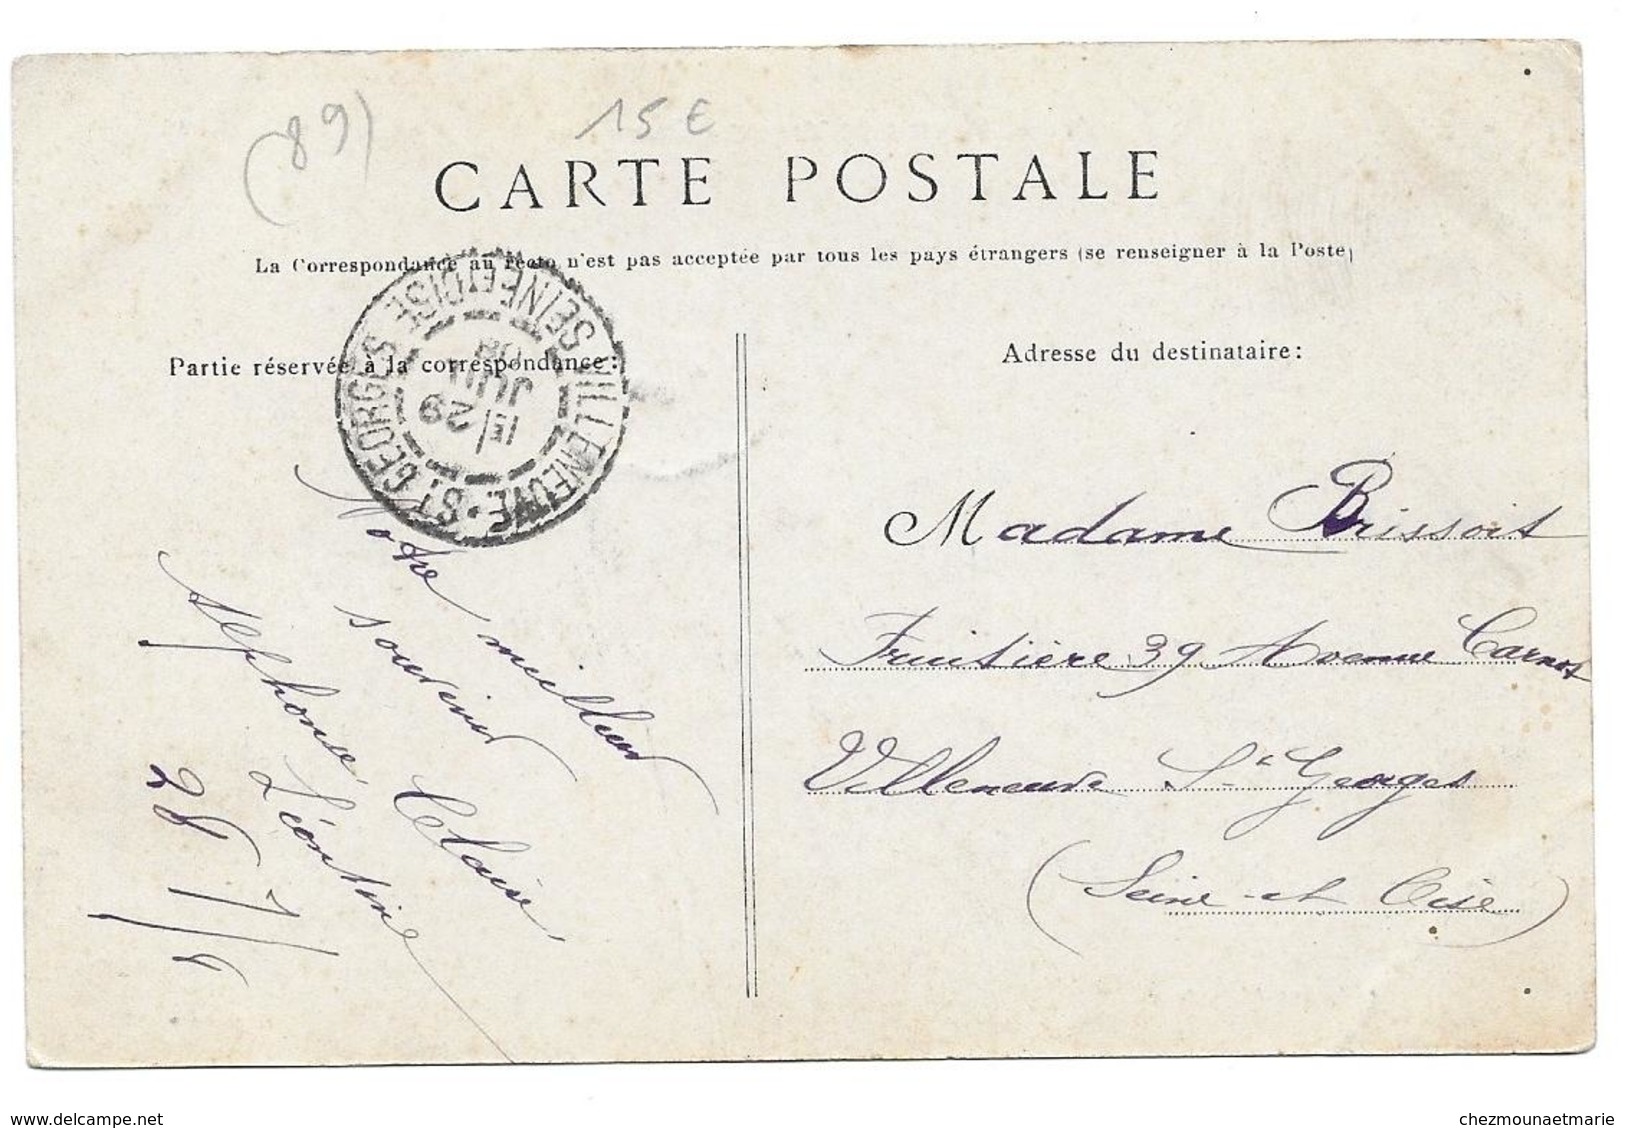 (89)
15 €
CARTE POSTALE
La Correspondance au recto n'est pas acceptée par tous les pays étrangers (se renseigner à la Poste)
Partie réservée à la correspondance:
VILLENEUVE-ST GEORGES
SEINE-ET-OISE
29
JUIL
08
Notre meilleur
souvenir
Alphonse Claire
Léontine
28/7/8
Adresse du destinataire:
Madame Brissoit
Fruitière 39 Avenue Carnot
Villeneuve St Georges
(Seine-et Oise)
www.delcampe.net
chezmounaetmarie